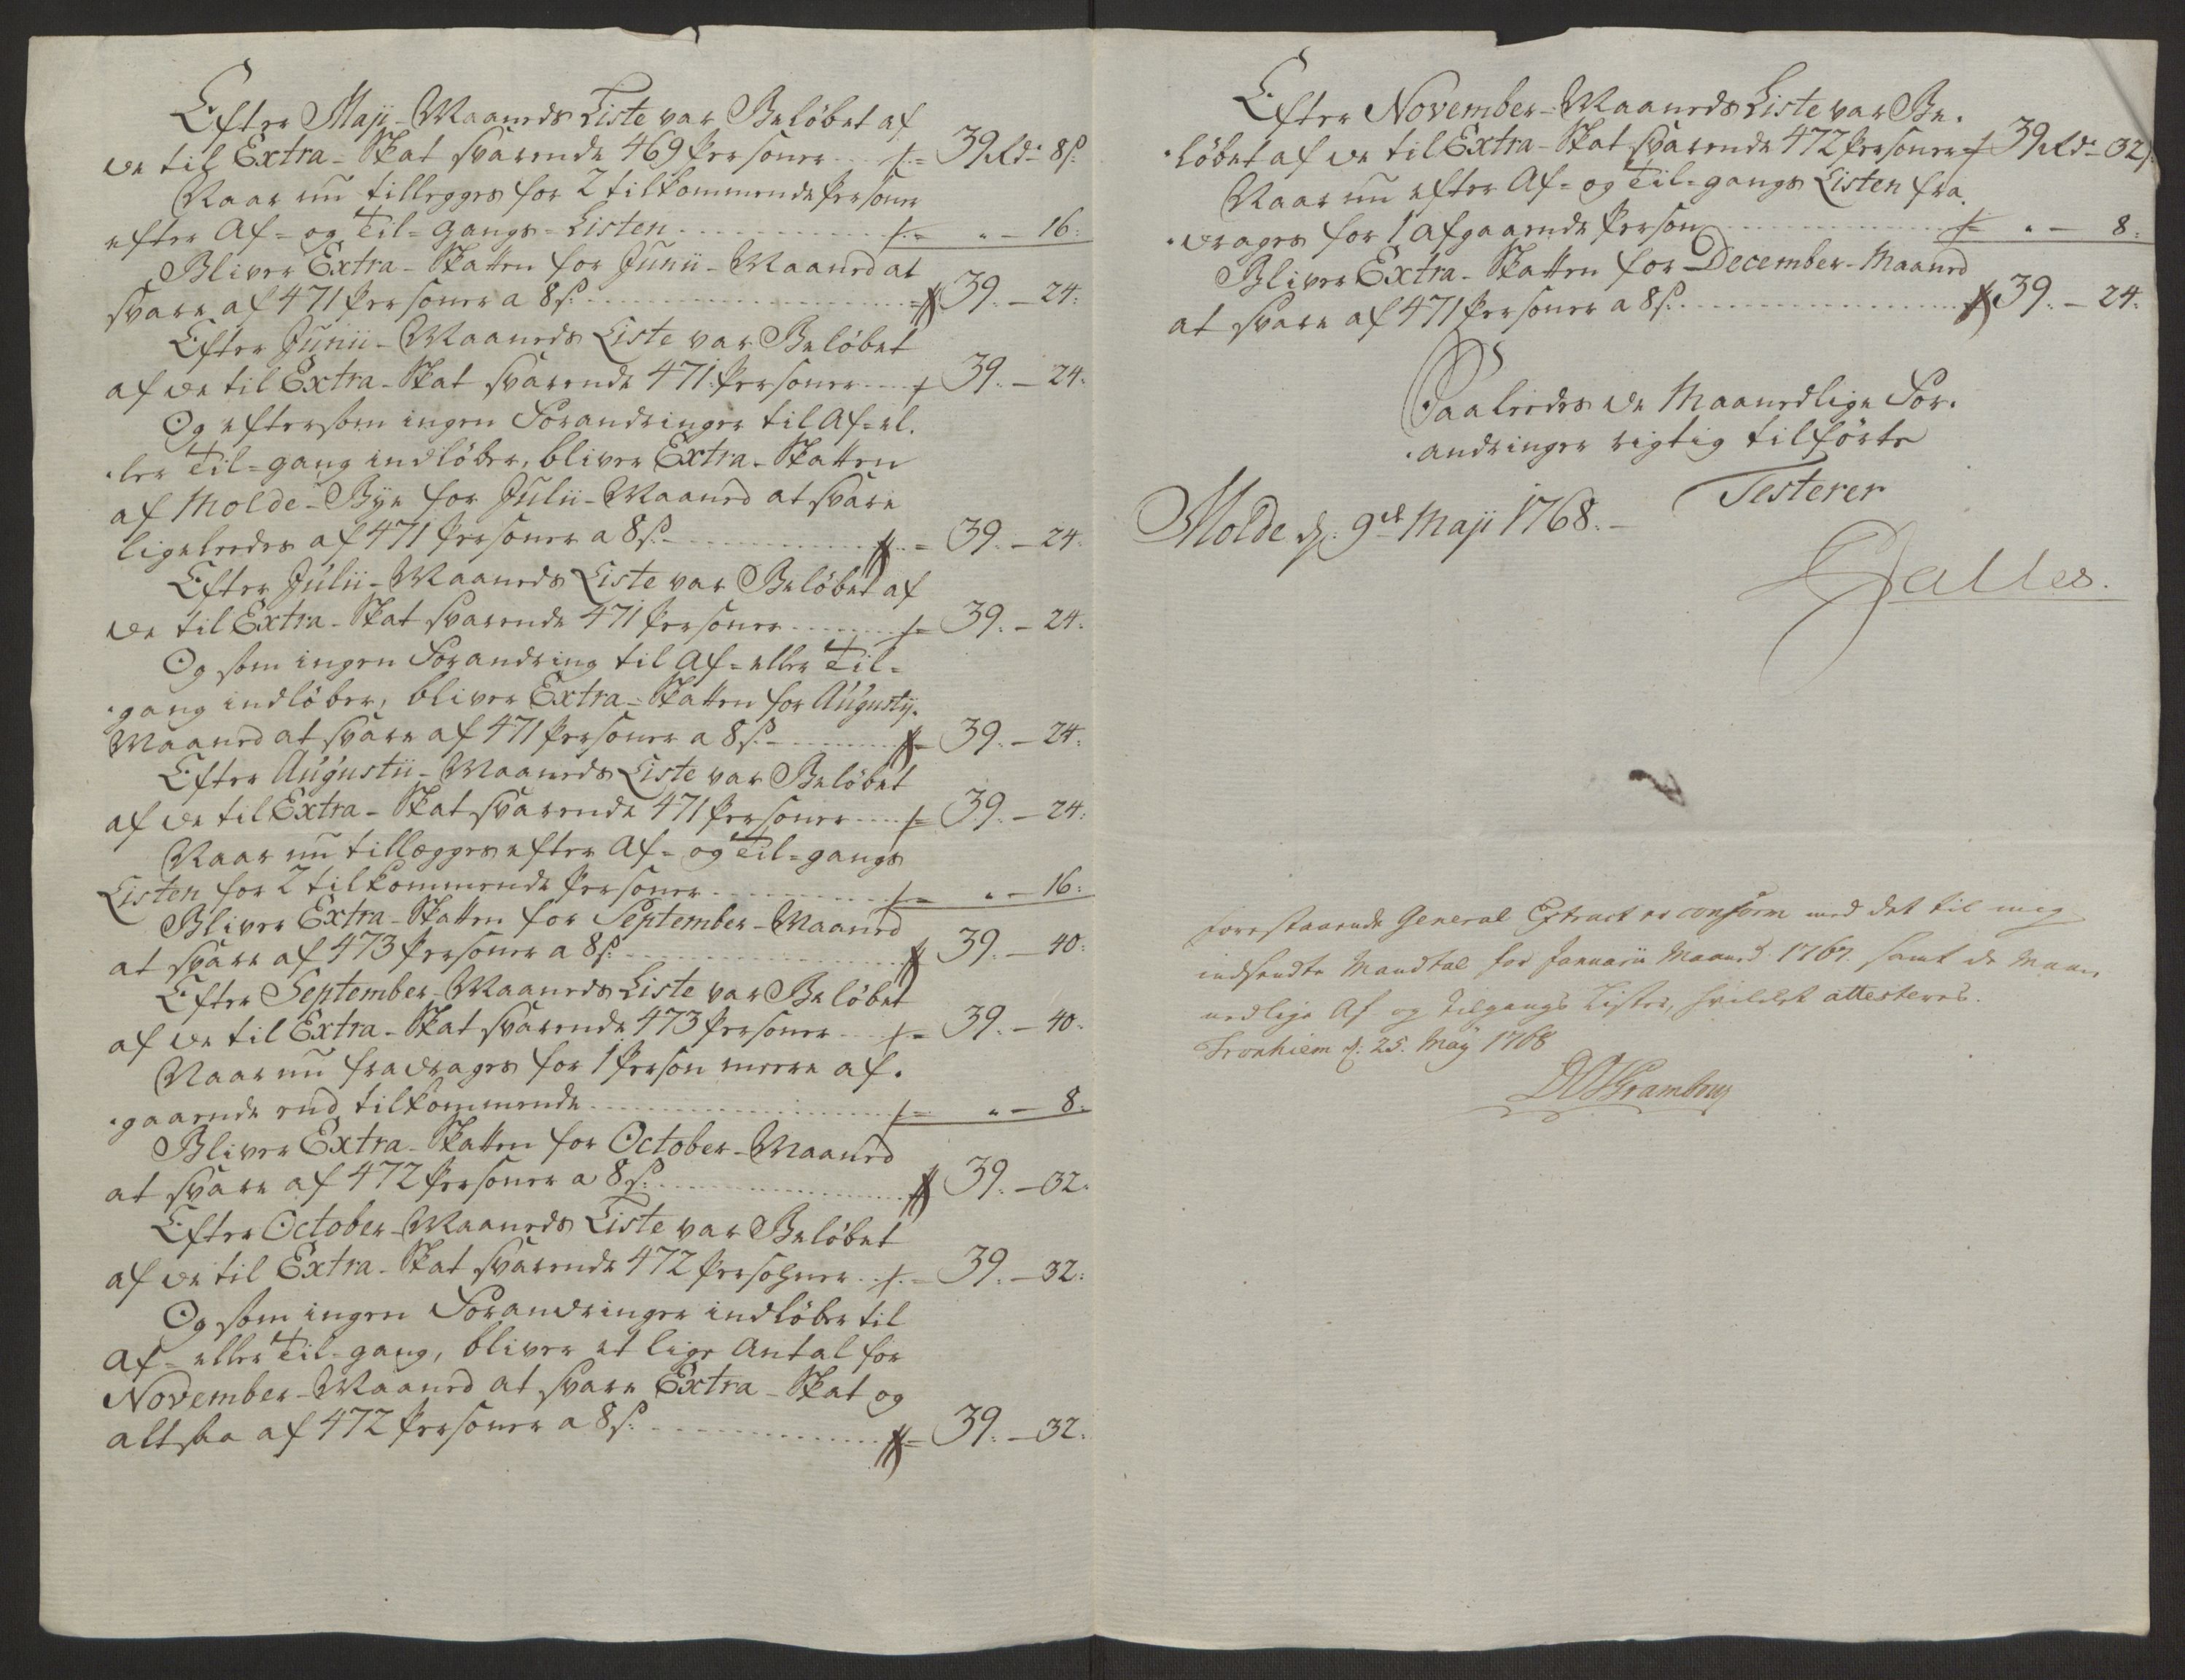 Efter Maji-Maaneds Liste var Beløbet af
de til Extra-Skat svarende 469 Personer - - - 39 Rd: 8 s:
Naar nu tillegges for 2 tilkommende Personer
efter Af- og Til-gangs-Listen - - - " - 16:
Bliver Extra-Skatten for Junii-Maaned at
svare af 471 Personer a 8 s: - - - 39. - 24:
Efter Junii-Maaneds Liste var Beløbet
af de til Extra-Skat svarende 471 Personer - - - 39. - 24:
Og eftersom ingen Forandringer til Af- el-
-ler Til-gang indløber, bliver Extra-Skatten
af Molde-Bye for Julii-Maaned at svare
ligeleedes af 471 Personer a 8 s: - - - 39. - 24:
Efter Julii-Maaneds Liste var Beløbet af
de til Extra-Skat svarende 471 Personer - - - 39. - 24:
Og som ingen Forandring til Af- eller Til-
-gang indløber, bliver Extra-Skatten for Augustij-
Maaned at svare af 471 Personer a 8 s: - - - 39. - 24:
Efter Augustii-Maaneds Liste var Beløbet
af de til Extra-Skat svarende 471 Personer - - - 39. - 24:
Naar nu tillægges efter Af- og Til-gangs
Listen for 2 tilkommende Personer - - - " - 16:
Bliver Extra-Skatten for September-Maaned
at svare af 473 Personer a 8 s: - - - 39. - 40:
Efter September-Maaneds Liste var Beløbet
af de til Extra-Skat svarende 473 Personer - - - 39. - 40:
Naar nu fradrages for 1 Person meere af-
-gaaende end tilkommende - - - " - 8:
Bliver Extra-Skatten for October-Maaned
at svare af 472 Personer a 8 s: - - - 39. - 32:
Efter October-Maaneds Liste var Beløbet
af de til Extra-Skat svarende 472 Persohner - - - 39. - 32:
Og som ingen Forandringer indløber til
Af- eller Til-gang, bliver et lige Antal for
November-Maaned at svare Extra-Skat og
altsaa af 472 Personer a 8 s: - - - 39. - 32:
Efter November-Maaneds Liste var Be-
-løbet af de til Extra-Skat svarende 472 Personer 39 Rd: - 32 s:
Naar nu efter Af- og Til-gangs Listen fra-
-drages for 1 afgaaende Person - - - " - 8:
Bliver Extra-Skatten for December-Maaned
at svare af 471 Personer a 8 s: - - - 39. - 24:
Saaleedes de Maanedlige For-
-andringer rigtig tilførte
Testerer
Molde d: 9de Maji 1768. -
Galles.
Forestaaende General Extract er conform med det til mig
indsendte Mandtal for Januarii Maaned 1767. samt de Maa-
nedlige Af og Tilgangs Lister, hvilket attesteres.
Tronhiem d: 25. Maÿ 1768